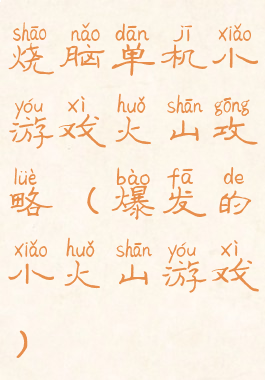 shāo nǎo dān jī xiǎo
烧脑单机小
yóu xì huǒ shān gōng
游戏火山攻
lüè bào fā de
略(爆发的
xiǎo huǒ shān yóu xì
小火山游戏
)